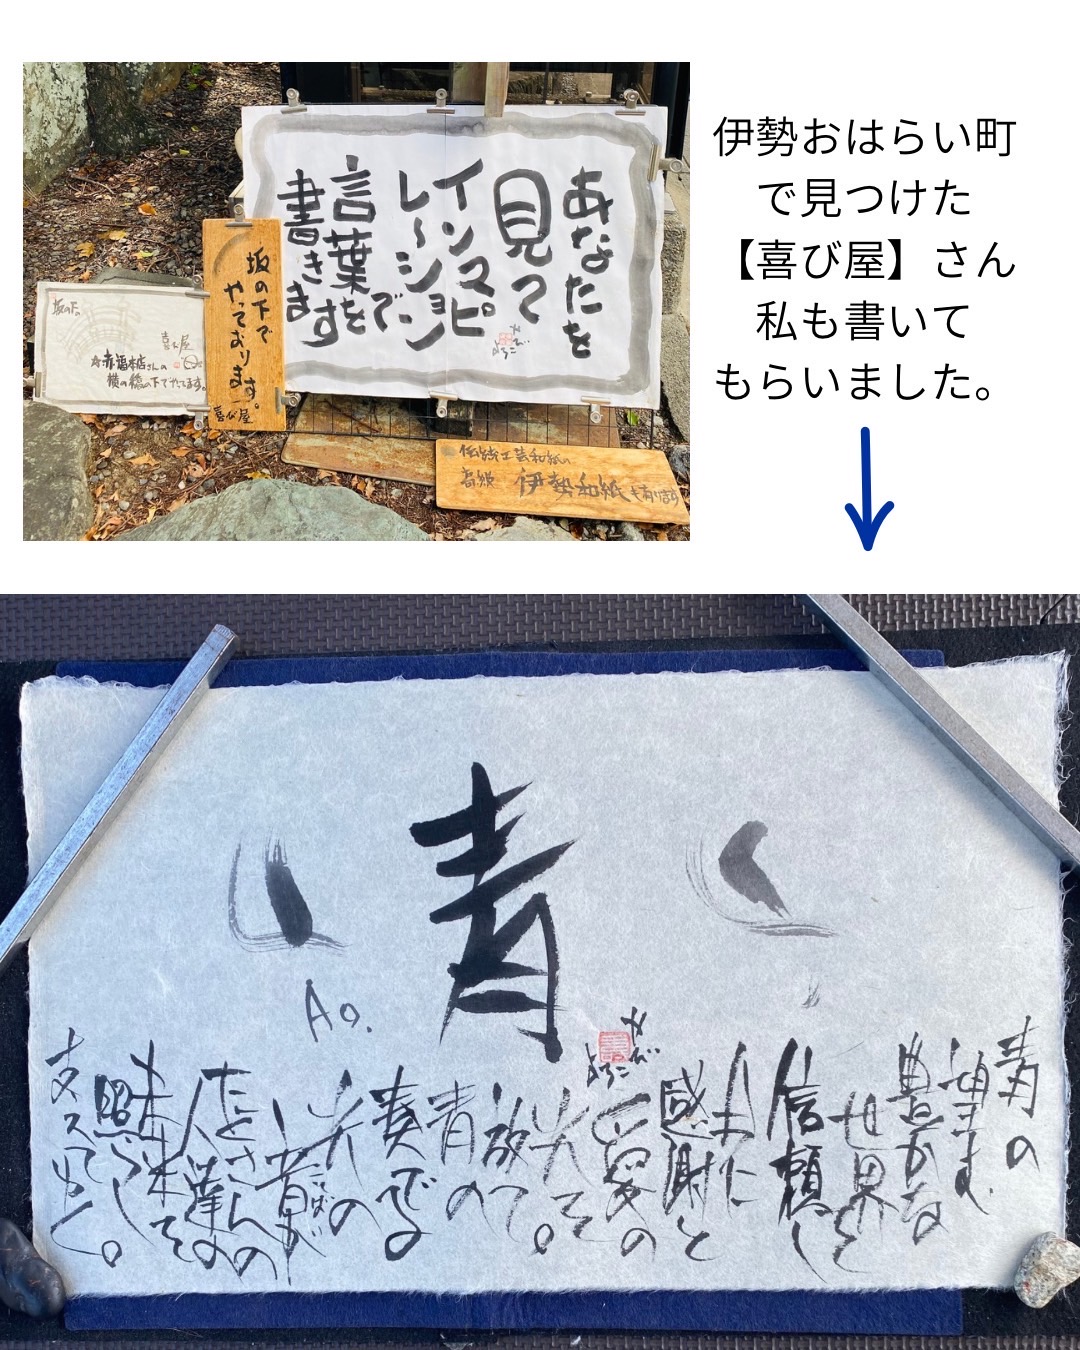 伊勢おはらい町
で見つけた
【喜び屋】さん
私も書いて
もらいました。
あなたを
見て
インスピ
レーションで
言葉を
書きます
坂の下で
やっております。
喜び屋
坂の下。
喜び屋
☆赤福本店さんの
横の橋の下でやってます。
伝統工芸和紙の
高級 伊勢和紙も有ります
青
Ao.
青の
豊かな
世界を
信頼し
感謝と
愛の
光を
放て。
青の
奏でる
光の
たくさんの
人達の
未来を
照らし
支えてゆく。